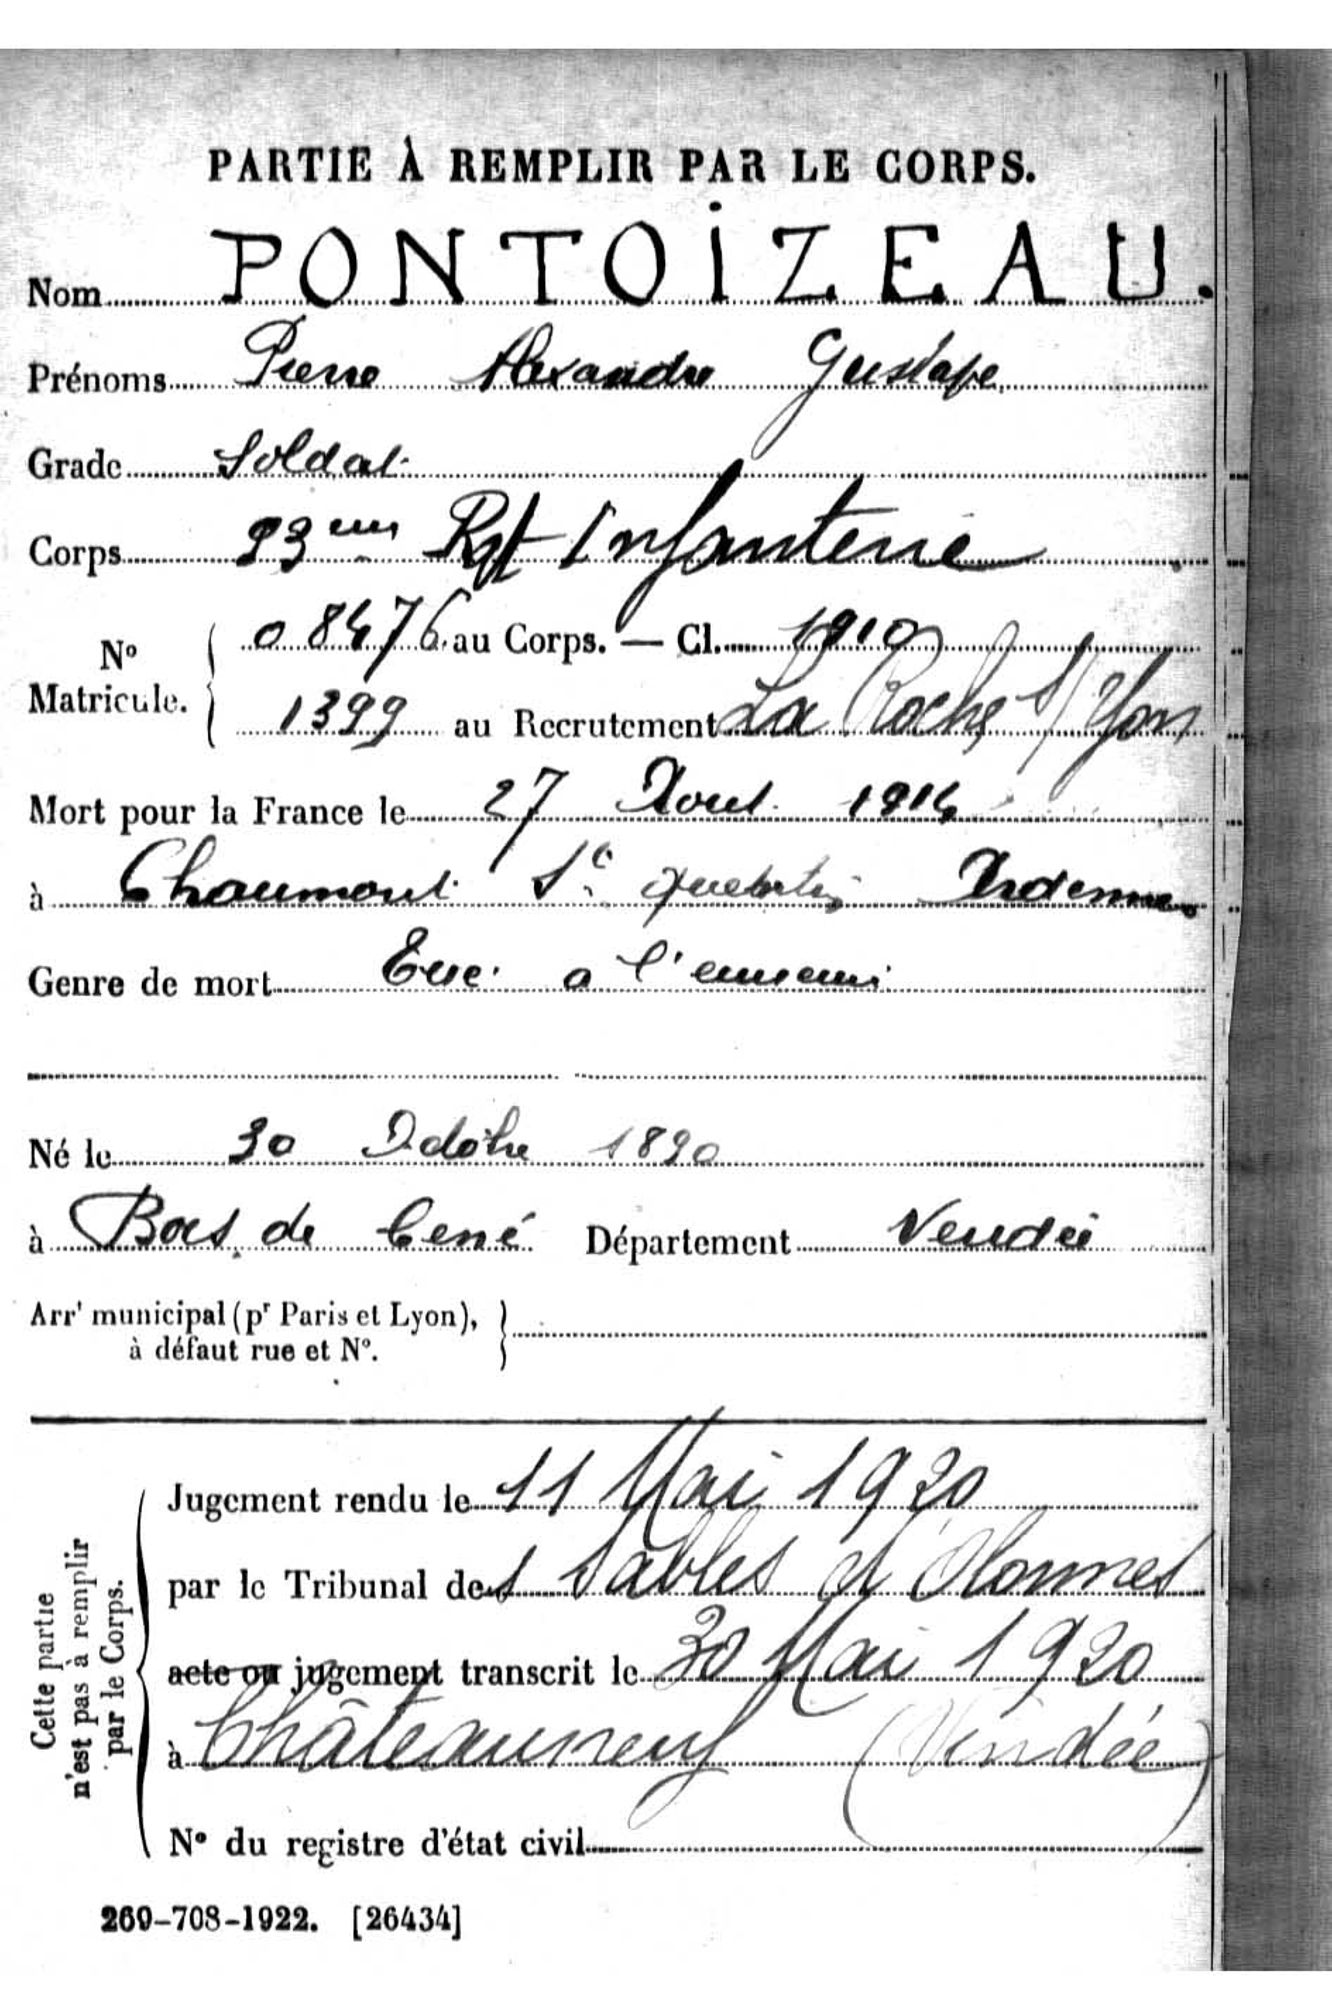 PARTIE À REMPLIR PAR LE CORPS.
Nom PONTOIZEAU.
Prénoms Pierre Alexandre Gustave
Grade Soldat
Corps 93eme Rgt Infanterie
N° Matricule. 08476 au Corps. — Cl. 1910
1399 au Recrutement La Roche s/Yon
Mort pour la France le 27 Aout 1914
à Chaumont St Quentin Ardennes
Genre de mort Tué a l'ennemi
Né le 30 Octobre 1890
à Bois de Cené Département Vendée
Arrt municipal (pr Paris et Lyon),
à défaut rue et N°.
Jugement rendu le 11 Mai 1920
par le Tribunal des Sables d'Olonnes
acte ou jugement transcrit le 30 Mai 1920
à Châteauneuf (Vendée)
N° du registre d'état civil
Cette partie
n'est pas à remplir
par le Corps.
269-708-1922. [26434]